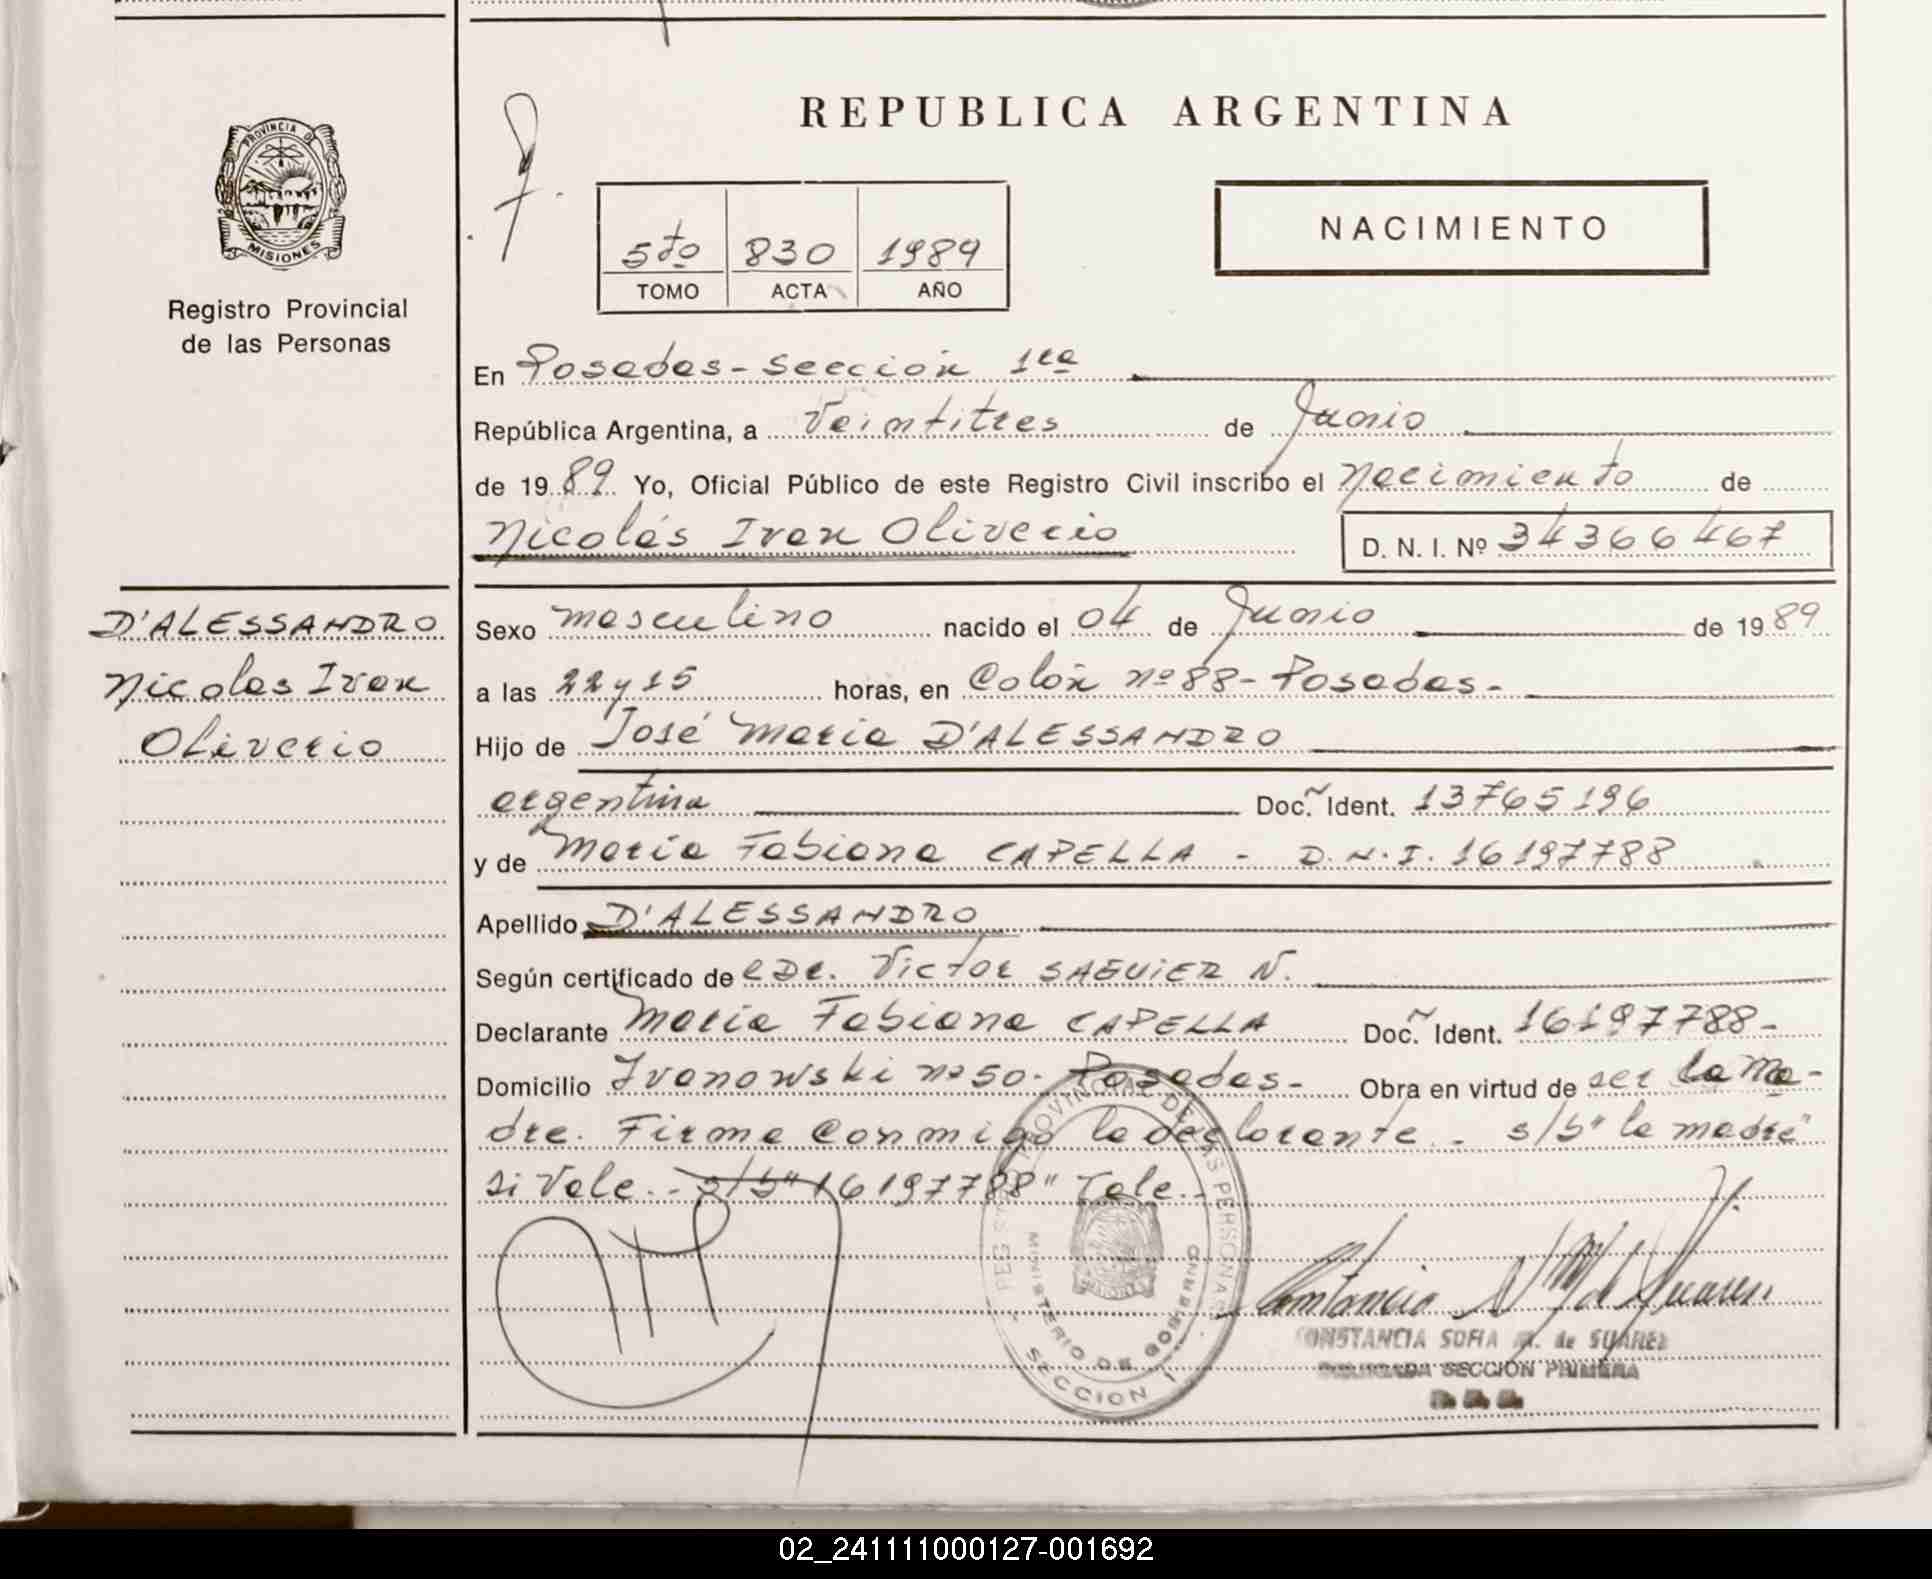 PROVINCIA DE
MISIONES
Registro Provincial
de las Personas
D'ALESSANDRO
Nicolas Ivan
Oliverio
REPUBLICA ARGENTINA
NACIMIENTO
5to 830 1989
TOMO ACTA AÑO
En Posadas-Sección 1ra
República Argentina, a Veintitres de Junio
de 1989 Yo, Oficial Público de este Registro Civil inscribo el Nacimiento de
Nicolás Ivan Oliverio D. N. I. Nº 34366467
Sexo masculino nacido el 04 de Junio de 1989
a las 22 y 15 horas, en Colón nº 88- Posadas-
Hijo de José Maria D'ALESSANDRO
argentina Doc. Ident. 13765196
y de Maria Fabiana CAPELLA - D.N.I. 16197788
Apellido D'ALESSANDRO
Según certificado de Dr. Victor SAGUIER N.
Declarante Maria Fabiana CAPELLA Doc. Ident. 16197788-
Domicilio Ivanowski nº 50- Posadas- Obra en virtud de ser la ma-
dre. Firma conmigo la declarante - s/b "la madre"
si Vale.- s/b "16197788" Vale.-
REGISTRO PROVINCIAL DE LAS PERSONAS
MINISTERIO DE GOBIERNO
SECCION 1
Constancia de Suarez
CONSTANCIA SOFIA M. de SUAREZ
DELEGADA SECCION PRIMERA
02_241111000127-001692